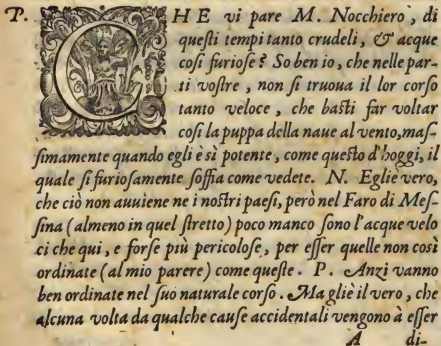 P. CHE vi pare M. Nocchiero, di
queſti tempi tanto crudeli, & acque
coſi furioſe? So ben io, che nelle par-
ti voſtre, non ſi truoua il lor corſo
tanto veloce, che baſti far voltar
coſi la puppa della naue al vento, maſ-
ſimamente quando egli è sì potente, come queſto d'hoggi, il
quale ſi furioſamente ſoffia come vedete. N. Egli è vero,
che ciò non auuiene ne i noſtri paeſi, però nel Faro di Meſ-
ſina (almeno in quel ſtretto) poco manco ſono l'acque velo
ci che qui, e forſe più pericoloſe, per eſſer quelle non così
ordinate (al mio parere) come queſte. P. Anzi vanno
ben ordinate nel ſuo naturale corſo. Ma gliè il vero, che
alcuna volta da qualche cauſe accidentali vengono à eſſer
A di-